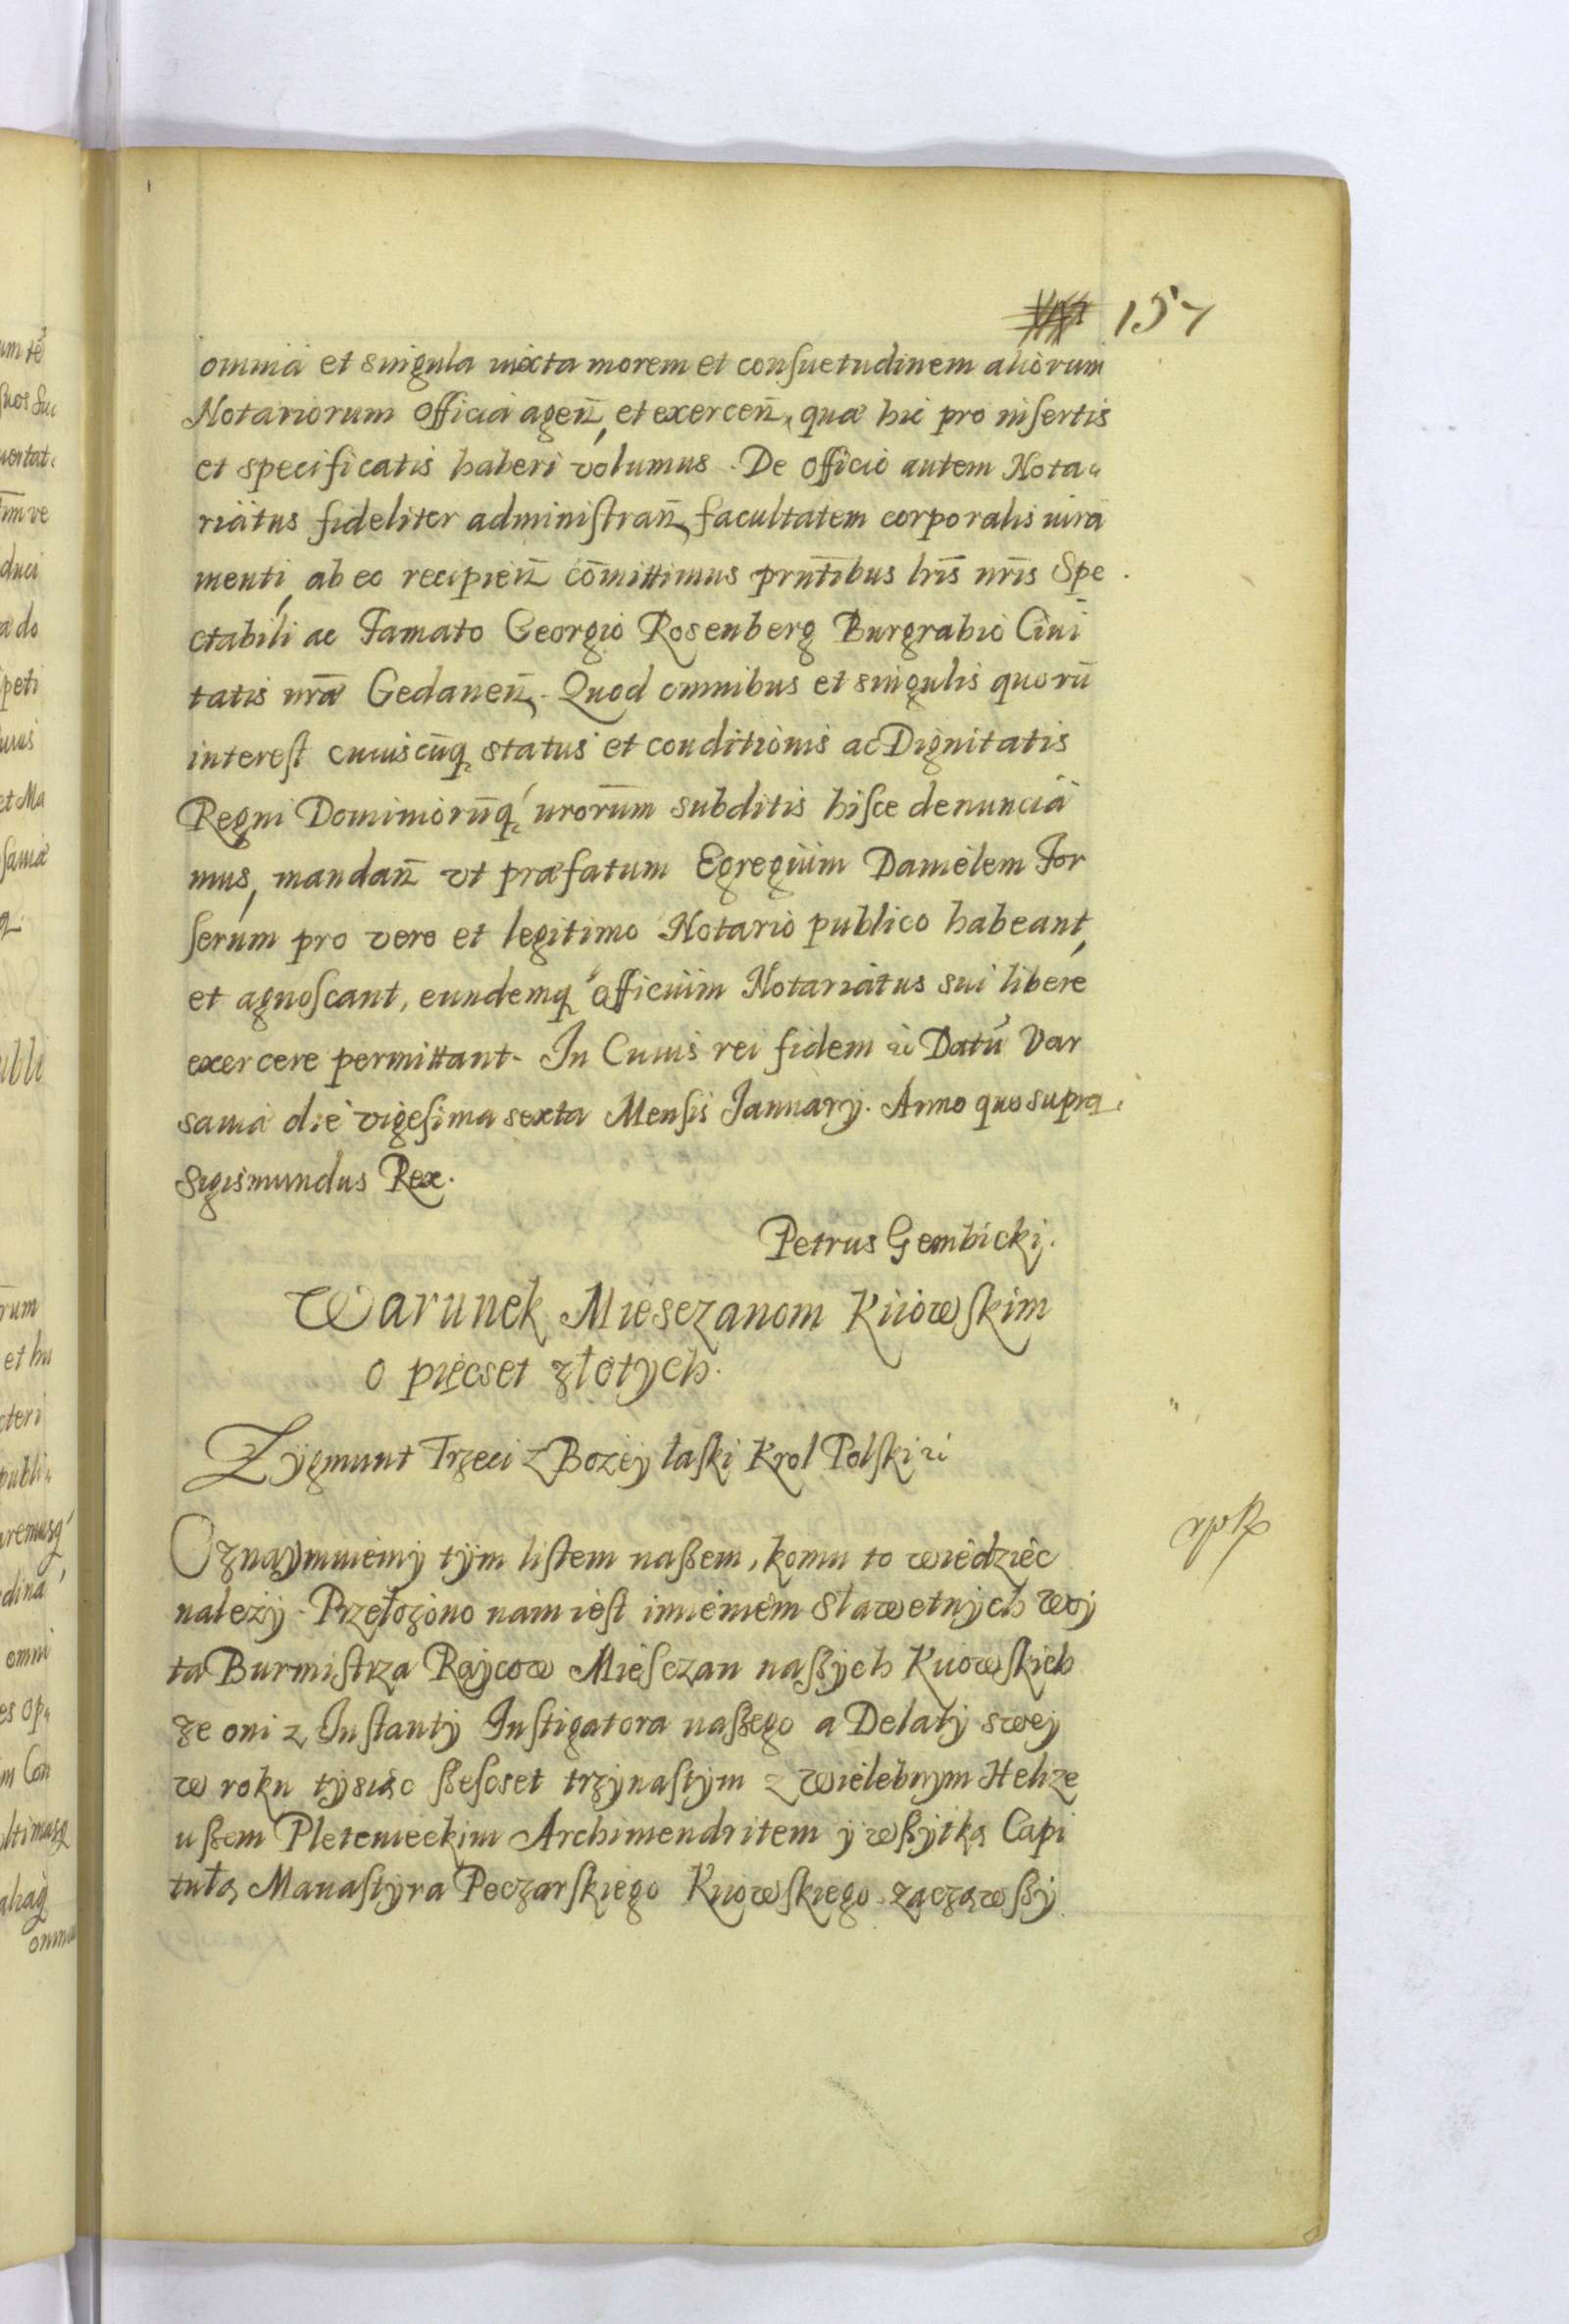 157
omnia et singula iuxta morem et consuetudinem aliorum
Notariorum officia agen̄, et exercen̄, quæ hic pro insertis
et specificatis haberi volumus. De officio autem Nota-
riatus fideliter administran̄ facultatem corporalis iura
menti, ab eo recipien̄ com̄ittimus prn̄tibus lr̄is nr̄is Spe
ctabili ac Famato Georgio Rosenberg Burgrabio Ciui
tatis nr̄æ Gedanen̄. Quod omnibus et singulis quorū
interest cuiuscūq, status et conditionis ac Dignitatis
Regni Dominiorūq, nrorum subditis hisce denuncia
mus, mandan̄ vt præfatum Egregium Danielem For
serum pro vero et legitimo Notario publico habeant,
et agnoscant, eundemq officium Notariatus sui libere
exercere permittant. In Cuius rei fidem &c Datū Var
sauiæ die vigesima sexta Mensis Ianuarij. Anno quo supra.
Sigismundus Rex.
Petrus Gembicki.
Warunek Miesczanom Kiiowskim
o pięcset złotych.
Zygmunt Trzeci z Bozey łaski Krol Polski &c
Oznaymuiemy tym listem naszem, komu to wiedziec
nalezy. Przełozono nam iest imieniem Sławetnych Woy
ta Burmistrza Raycow Miesczan naszych Kiiowskich
ze oni z Instanty Instigatora naszego a Delaty swey
w roku tysiąc szescset trzynastym z Wielebnym Helize
uszem Pletenieckim Archimendritem y wszytką Capi
tułą Manastyra Peczarskiego Kiiowskiego zacząwszy